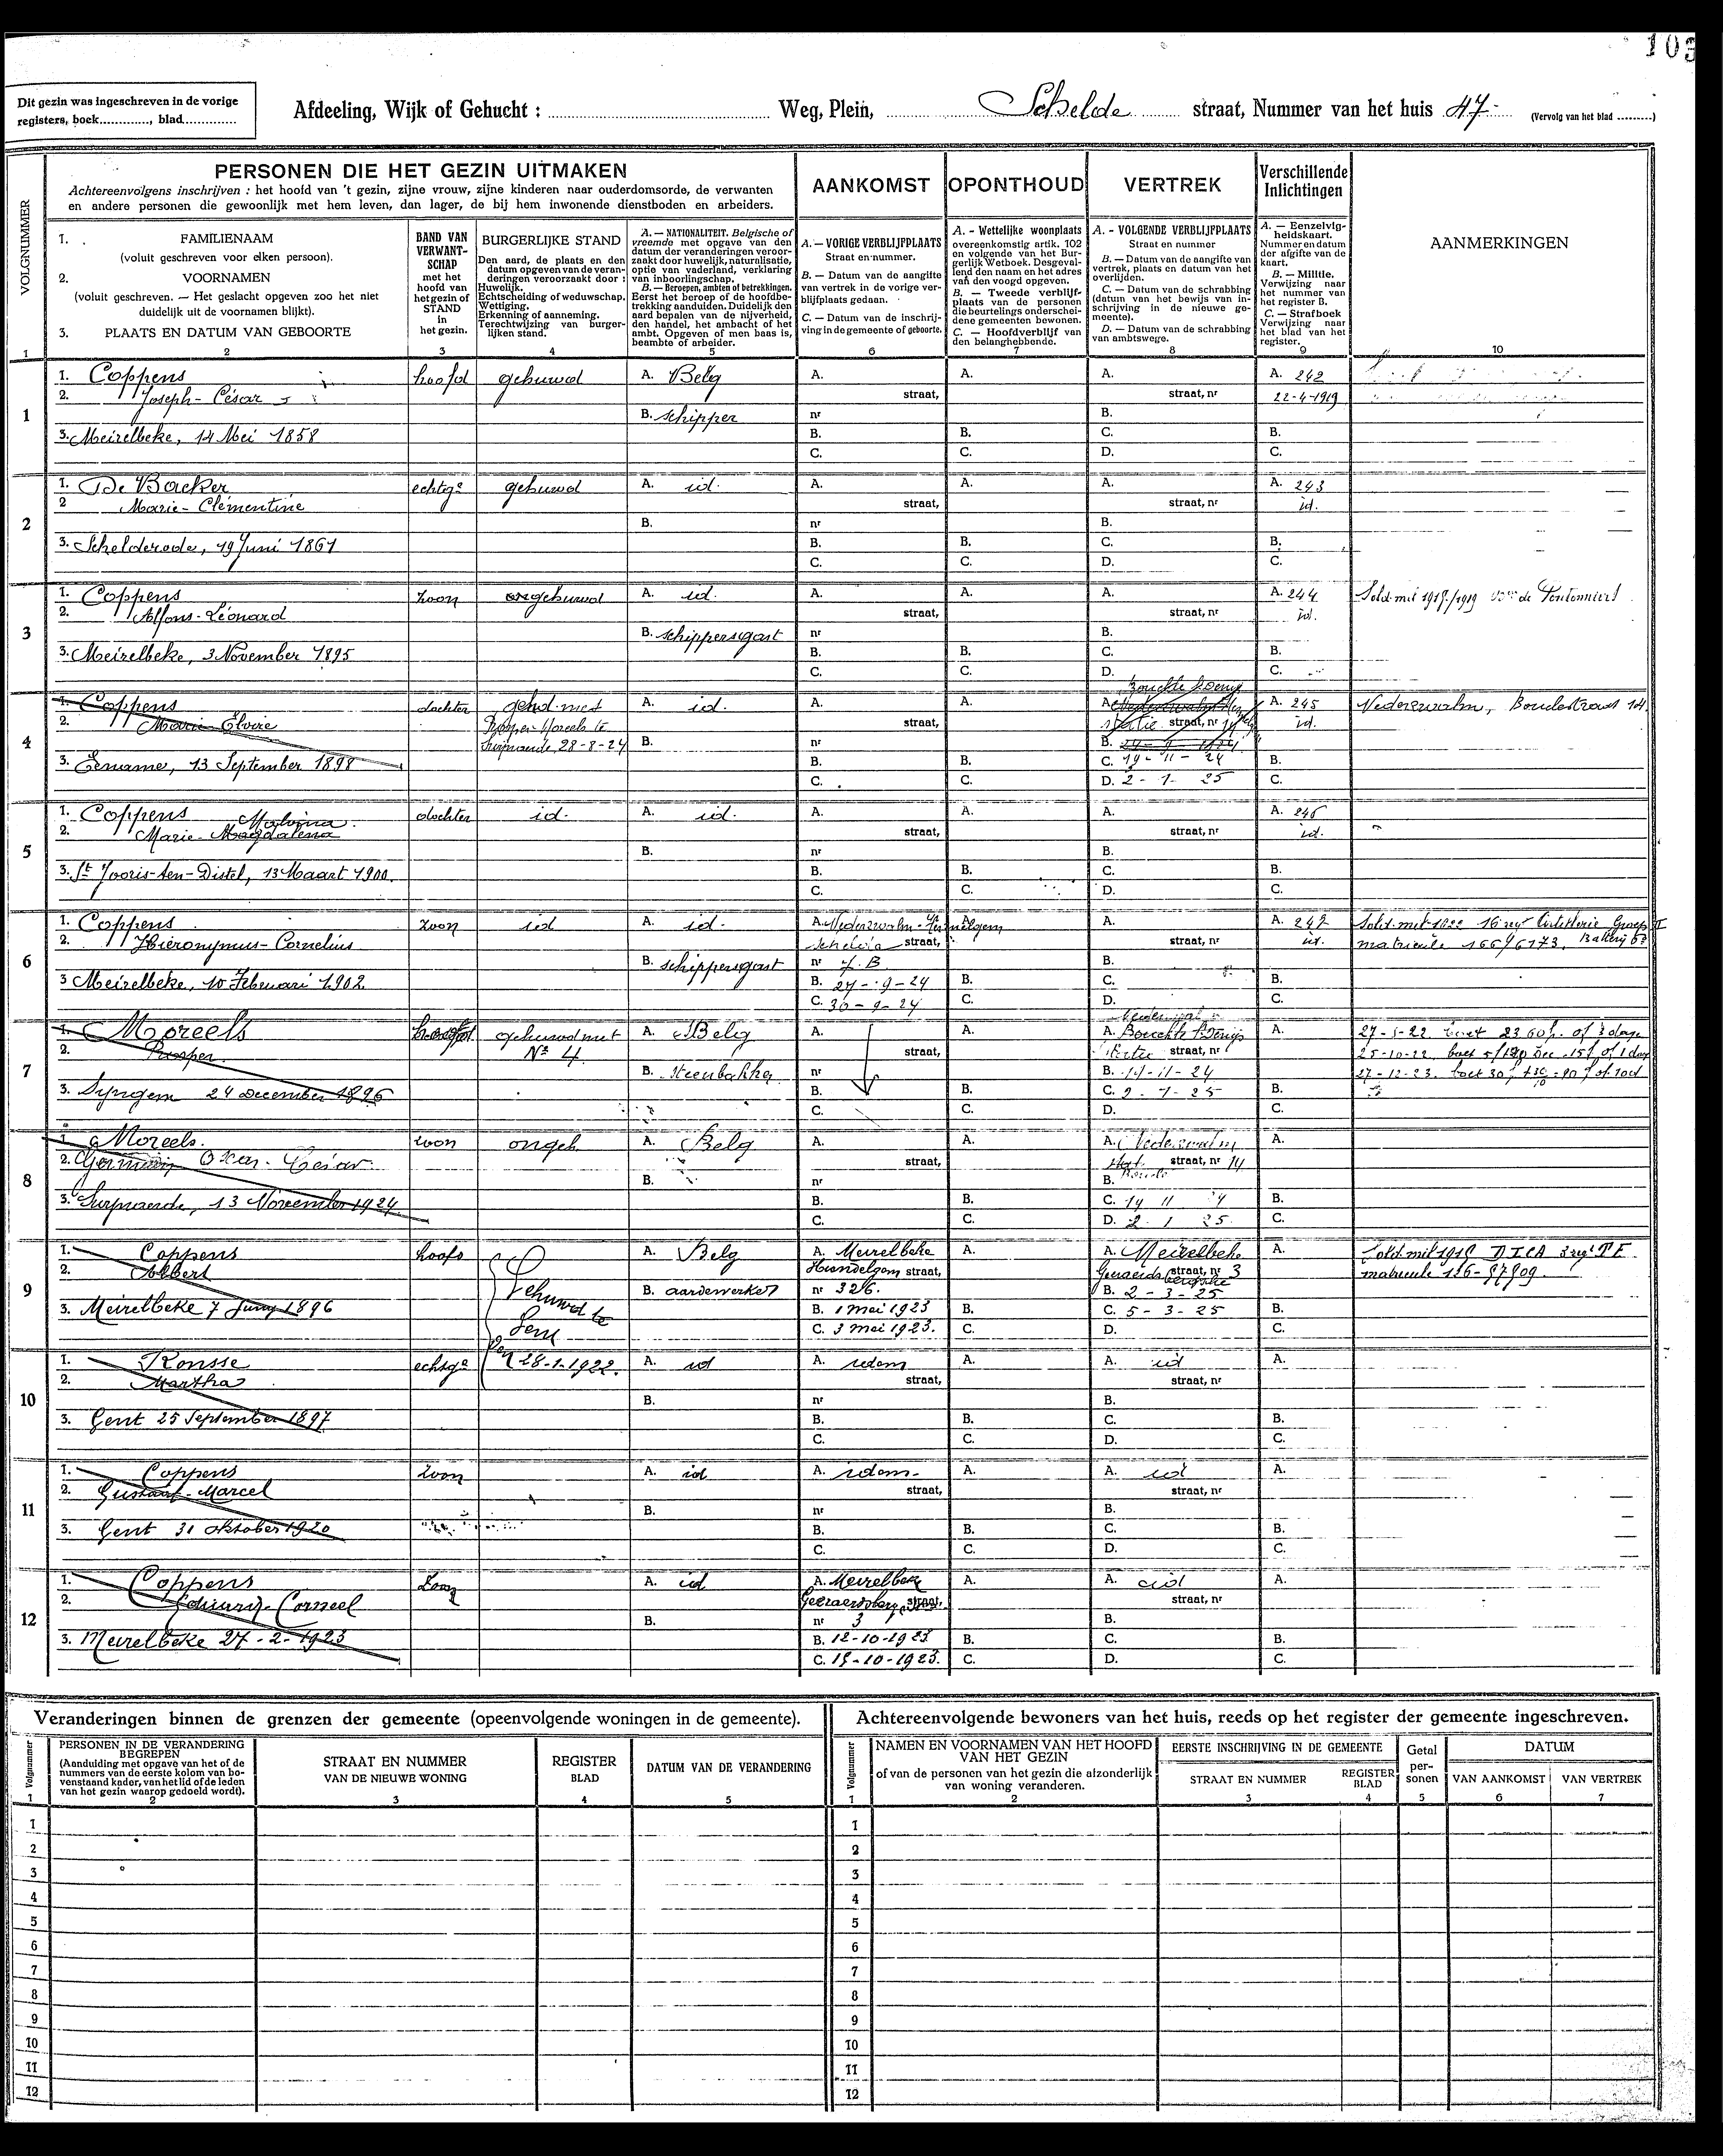 103
Dit gezin was ingeschreven in de vorige
registers, boek............, blad.............
Afdeeling, Wijk of Gehucht : Weg, Plein, Schelde straat, Nummer van het huis 47 (Vervolg van het blad .........)
VOLGNUMMER
PERSONEN DIE HET GEZIN UITMAKEN
Achtereenvolgens inschrijven : het hoofd van 't gezin, zijne vrouw, zijne kinderen naar ouderdomsorde, de verwanten
en andere personen die gewoonlijk met hem leven, dan lager, de bij hem inwonende dienstboden en arbeiders.
1. FAMILIENAAM
(voluit geschreven voor elken persoon).
2. VOORNAMEN
(voluit geschreven. — Het geslacht opgeven zoo het niet
duidelijk uit de voornamen blijkt).
3. PLAATS EN DATUM VAN GEBOORTE
BAND VAN
VERWANT-
SCHAP
met het
hoofd van
het gezin of
STAND
in
het gezin.
BURGERLIJKE STAND
Den aard, de plaats en den
datum opgeven van de veran-
deringen veroorzaakt door :
Huwelijk.
Echtscheiding of weduwschap.
Wettiging.
Erkenning of aanneming.
Terechtwijzing van burger-
lijken stand.
A. — NATIONALITEIT. Belgische of
vreemde met opgave van den
datum der veranderingen veroor-
zaakt door huwelijk, naturalisatie,
optie van vaderland, verklaring
van inboorlingschap.
B. — Beroepen, ambten of betrekkingen.
Eerst het beroep of de hoofdbe-
trekking aanduiden. Duidelijk den
aard bepalen van de nijverheid,
den handel, het ambacht of het
ambt. Opgeven of men baas is,
beambte of arbeider.
AANKOMST
A. — VORIGE VERBLIJFPLAATS
Straat en nummer.
B. — Datum van de aangifte
van vertrek in de vorige ver-
blijfplaats gedaan.
C. — Datum van de inschrij-
ving in de gemeente of geboorte.
OPONTHOUD
A. - Wettelijke woonplaats
overeenkomstig artik. 102
en volgende van het Bur-
gerlijk Wetboek. Desgeval-
lend den naam en het adres
van den voogd opgeven.
B. — Tweede verblijf-
plaats van de personen
die beurtelings onderschei-
dene gemeenten bewonen.
C. — Hoofdverblijf van
den belanghebbende.
VERTREK
A. - VOLGENDE VERBLIJFPLAATS
Straat en nummer
B. — Datum van de aangifte van
vertrek, plaats en datum van het
overlijden.
C. — Datum van de schrabbing
(datum van het bewijs van in-
schrijving in de nieuwe ge-
meente).
D. — Datum van de schrabbing
van ambtswege.
Verschillende
Inlichtingen
A. — Eenzelvig-
heidskaart.
Nummer en datum
der afgifte van de
kaart.
B. — Militie.
Verwijzing naar
het nummer van
het register B.
C. — Strafboek
Verwijzing naar
het blad van het
register.
AANMERKINGEN
1 2 3 4 5 6 7 8 9 10
1
1. Coppens hoofd gehuwd A. Belg A. A. A. A. 242
2. Joseph-César straat, straat, nr 22-4-1919
B. schipper nr B.
3. Meirelbeke, 14 Mei 1858 B. B. C. B.
C. C. D. C.
2
1. De Backer echtge gehuwd A. id. A. A. A. A. 243
2 Marie-Clémentine straat, straat, nr id.
B. nr B.
3. Schelderode, 19 Juni 1861 B. B. C. B.
C. C. D. C.
3
1. Coppens zoon ongehuwd A. id. A. A. A. A. 244 Sold. mil 1915/1919 de Pontonniers
2. Alfons-Léonard straat, straat, nr id.
B. schippersgast nr B.
3. Meirelbeke, 3 November 1895 B. B. C. B.
C. C. D. C.
4
1. Coppens dochter gehd met A. id. A. A. A. A. 245 Nederzwalm, Bouclestraat 14.
2. Marie-Elvire Prosper Moreels te straat, straat, nr 14 id.
28-8-24 B. nr B.
3. Eename, 13 September 1898 B. C. 19-11-24 B.
C. D. 2-1-25 C.
5
1. Coppens dochter id. A. id. A. A. A. A. 246
2. Marie-Magdalena Malvina straat, straat, nr id.
B. nr B.
3. St Jooris-ten-Distel, 13 Maart 1900. B. B. C. B.
C. C. D. C.
6
1. Coppens zoon id A. id. A. Nederzwalm-Hermelgem A. A. A. 247 Sold. mil 1922 16 regt Artillerie Groep II
2. Hiëronymus-Cornelius Schelda straat, straat, nr id. matricule 166/6173, Batterij 63
B. schippersgast nr 7.B B.
3 Meirelbeke, 10 Februari 1902. B. 27-9-24 B. C. B.
C. 30-9-24 C. D. C.
7
1. Moreels hoofd gehuwd met A. Belg A. A. A. Bouchte A.
2. Prosper N° 4 straat, straat, nr
B. steenbakker nr B. 14-11-24
3. Syngem 24 December 1896 B. B. C. 2-1-25 B.
C. C. D. C.
8
1. Moreels. zoon ongeh. A. Belg A. A. A. Nederzwalm A.
2. Germain Oscar-César straat, straat, nr 14
B. nr B.
3. 13 November 1924. B. B. C. 14 11 24 B.
C. C. D. 2 1 25. C.
9
1. Coppens hoofd Gehuwd te A. Belg A. Meirelbeke A. A. Meirelbeke A. Sold. mil 1918 D.T.C.A
2. Albert Hundelgem straat, Geeraerdsbergsche straat, nr 3
B. aardewerker nr 326. B. 2-3-25
3. Meirelbeke 7 Juny 1896 B. 1 mei 1923 B. C. 5-3-25 B.
C. 3 mei 1923. C. D. C.
10
1. Ronsse echtge 28-1-1922. A. id A. idem A. A. id A.
2. Martha straat, straat, nr
B. nr B.
3. Gent 25 September 1897 B. B. C. B.
C. C. D. C.
11
1. Coppens zoon A. id A. idem- A. A. id A.
2. Gustaaf-Marcel straat, straat, nr
B. nr B.
3. Gent 31 oktober 1920 B. B. C. B.
C. C. D. C.
12
1. Coppens Zoon A. id A. Meirelbeke A. A. id A.
2. Corneel straat, straat, nr
B. nr 3 B.
3. Meirelbeke 27-2-1923 B. 12-10-1923. B. C. B.
C. 15-10-1923. C. D. C.
Veranderingen binnen de grenzen der gemeente (opeenvolgende woningen in de gemeente).
Volgnummer
PERSONEN IN DE VERANDERING
BEGREPEN
(Aanduiding met opgave van het of de
nummers van de eerste kolom van bo-
venstaand kader, van het lid of de leden
van het gezin waarop gedoeld wordt).
STRAAT EN NUMMER
VAN DE NIEUWE WONING
REGISTER
BLAD
DATUM VAN DE VERANDERING
1 2 3 4 5
1
2
3
4
5
6
7
8
9
10
11
12
Achtereenvolgende bewoners van het huis, reeds op het register der gemeente ingeschreven.
Volgnummer
NAMEN EN VOORNAMEN VAN HET HOOFD
VAN HET GEZIN
of van de personen van het gezin die afzonderlijk
van woning veranderen.
EERSTE INSCHRIJVING IN DE GEMEENTE
STRAAT EN NUMMER
REGISTER
BLAD
Getal
per-
sonen
DATUM
VAN AANKOMST
VAN VERTREK
1 2 3 4 5 6 7
1
2
3
4
5
6
7
8
9
10
11
12